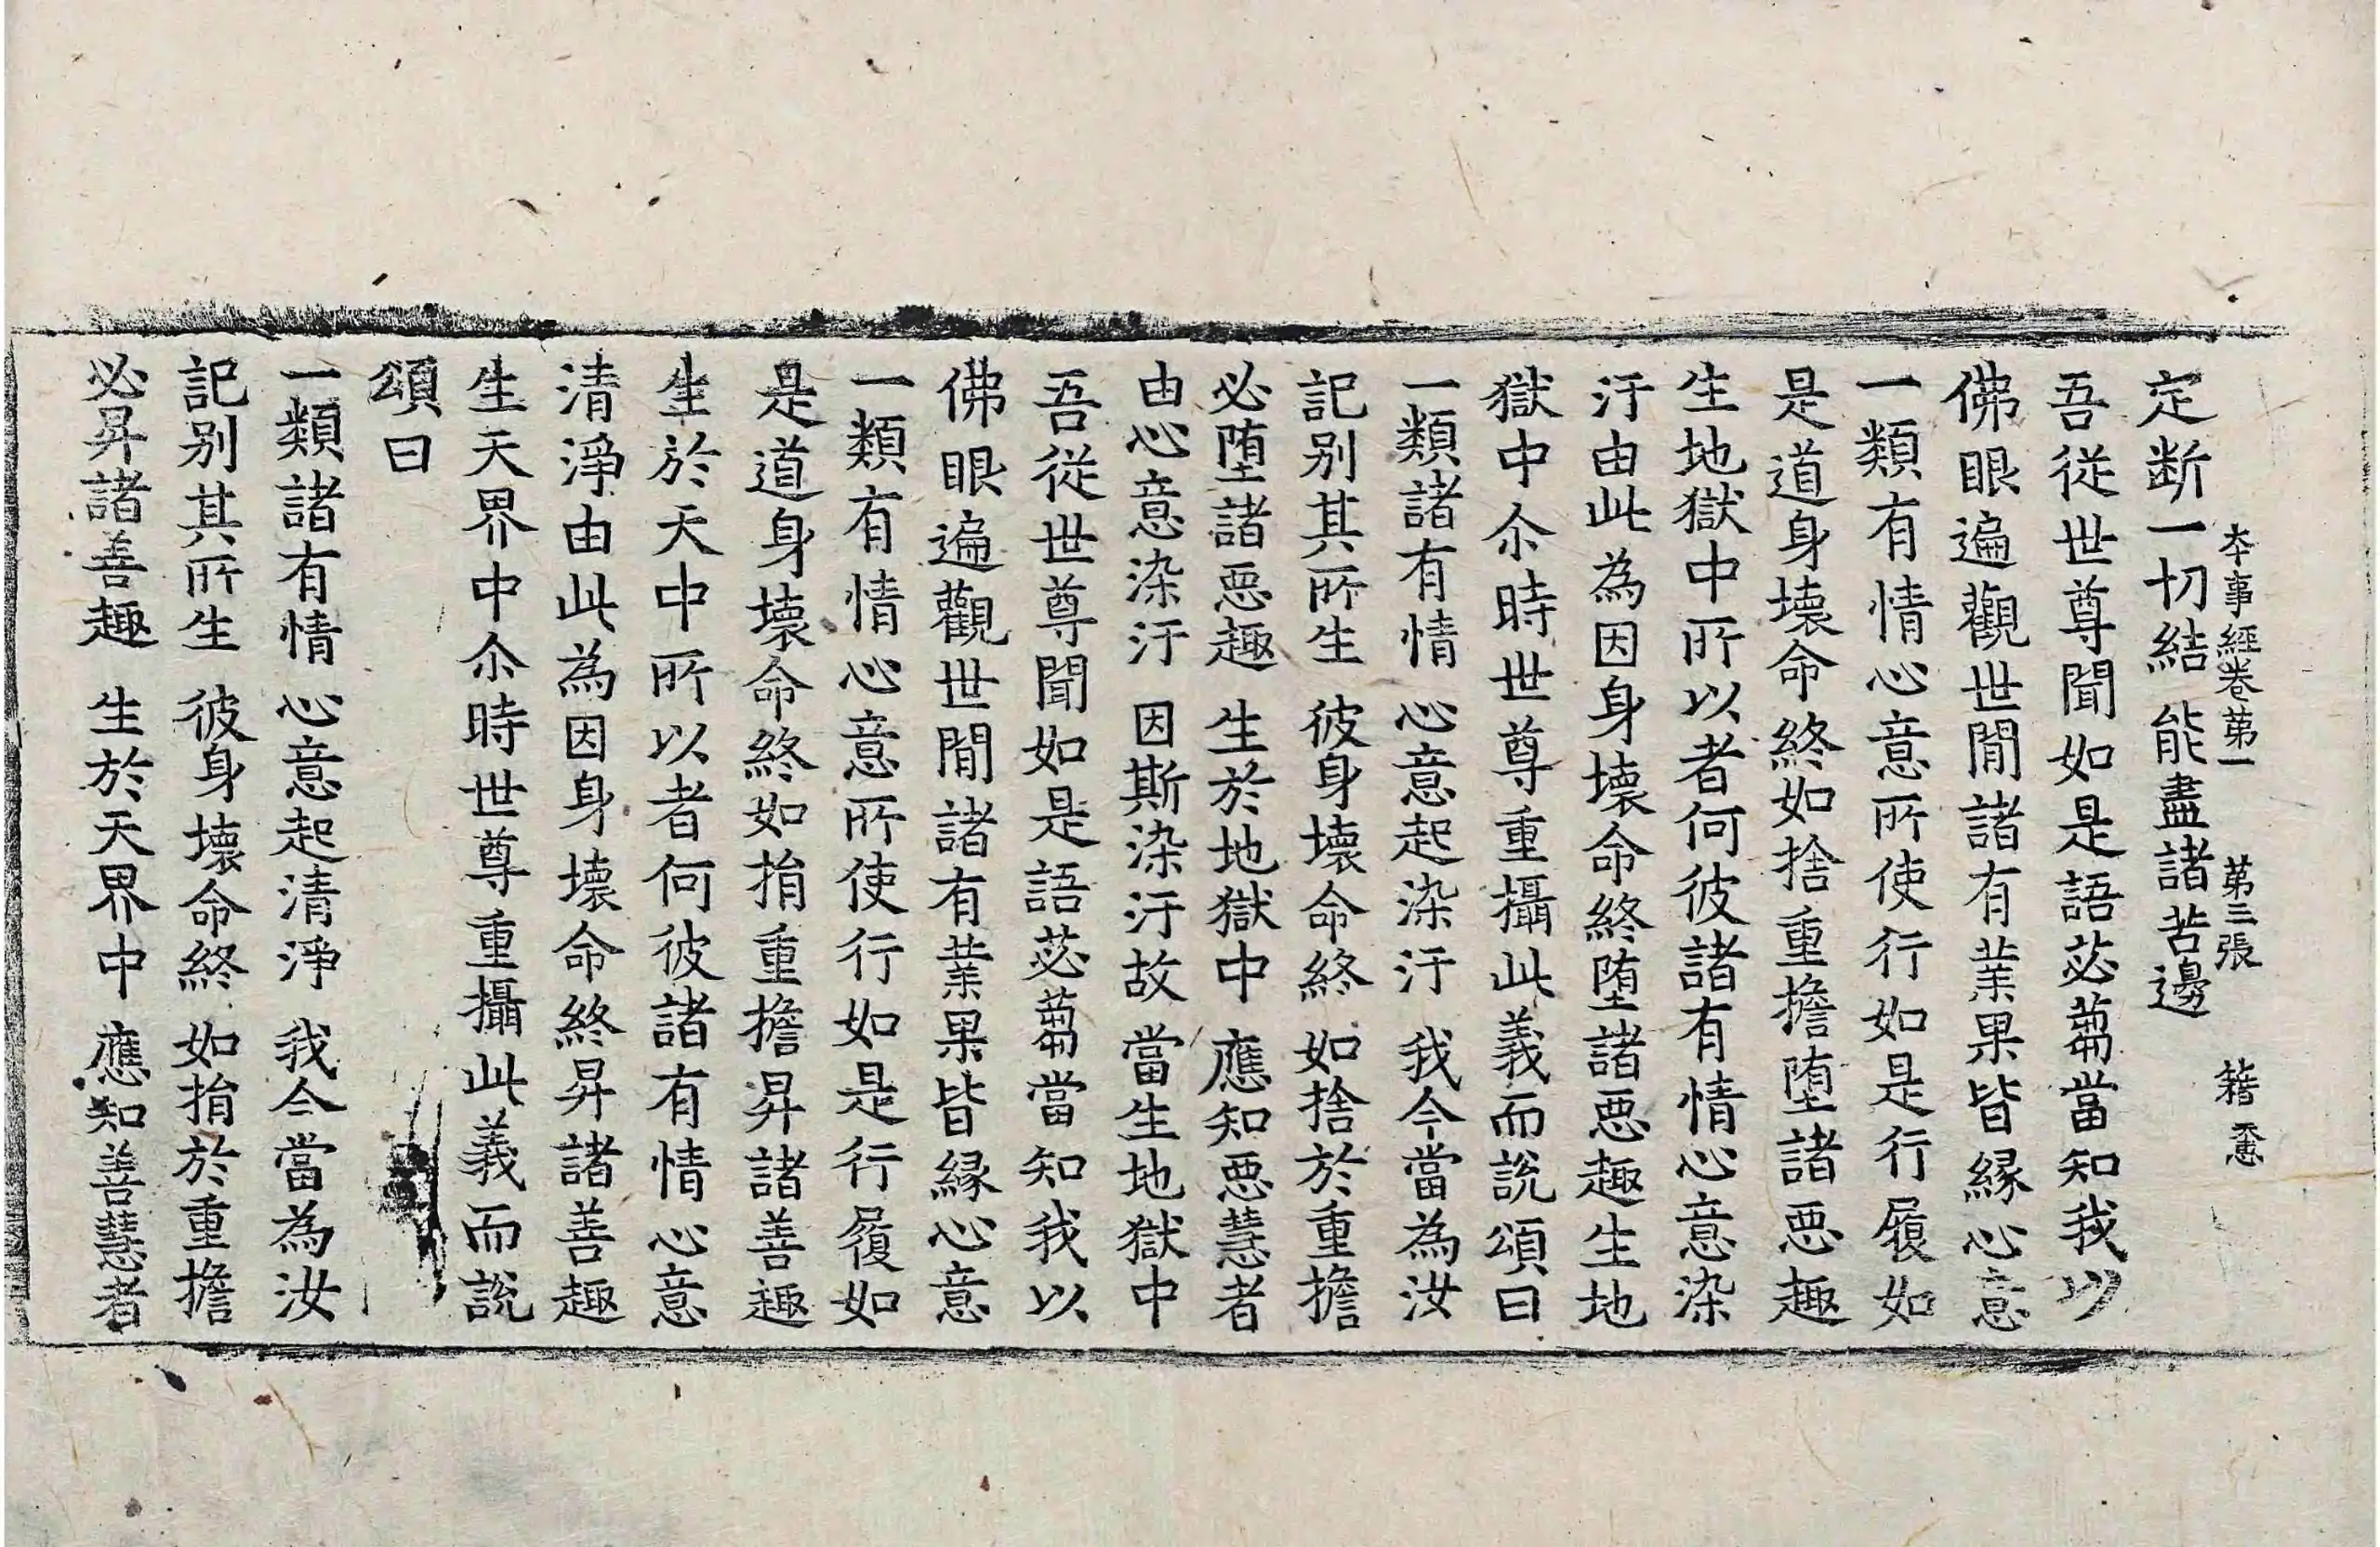 本事經卷第一　第三張　籍
定断一切結　能盡諸苦邊
吾從世尊聞如是語苾蒭當知我以
佛眼遍觀世間諸有業果皆縁心意
一類有情心意所使行如是行履如
是道身壊命終如捨重擔堕諸惡趣
生地獄中所以者何彼諸有情心意染
汙由此為因身壊命終堕諸惡趣生地
獄中尒時世尊重攝此義而說頌曰
一類諸有情　心意起染汙　我今當為汝
記别其所生　彼身壊命終　如捨於重擔
必堕諸惡趣　生於地獄中　應知惡慧者
由心意染汙　因斯染汙故　當生地獄中
吾從世尊聞如是語苾蒭當知我以
佛眼遍觀世間諸有業果皆縁心意
一類有情心意所使行如是行履如
是道身壊命終如捐重擔昇諸善趣
生於天中所以者何彼諸有情心意
清淨由此為因身壊命終昇諸善趣
生天界中尒時世尊重攝此義而說
頌曰
一類諸有情　心意起清淨　我今當為汝
記别其所生　彼身壊命終　如捐於重擔
必昇諸善趣　生於天界中　應知善慧者